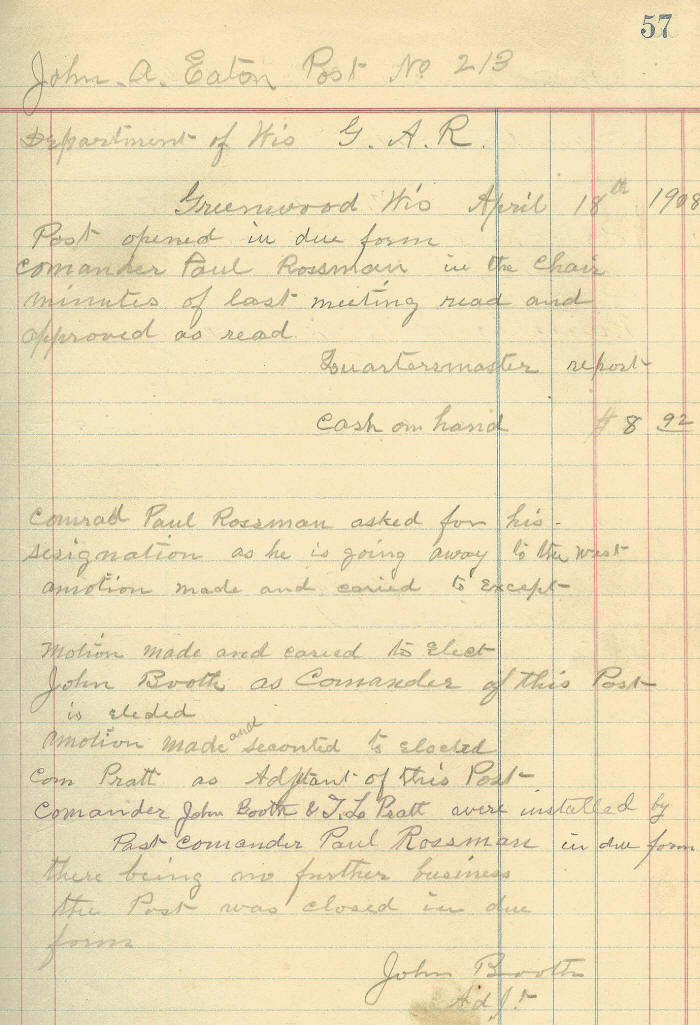 57
John. A. Eaton Post No 213
Department of Wis G. A. R.
Greenwood Wis April 18th 1908
Post opened in due form
Comander Paul Rossman in the Chair
minutes of last meeting read and
approved as read
Quartersmaster report
Cash on hand $8 92
Comrad Paul Rossman asked for his
resignation as he is going away to the west
amotion made and caried to Except
Motion made and caried to Elect
John Booth as Comander of this Post
is eleded
Amotion made and seconted to elected
Com Pratt as Adjtant of this Post
Comander John Booth & T. L. Pratt were installed by
Past Comander Paul Rossman in due form
there being no further business
the Post was closed in due
form
John Booth
Adj't